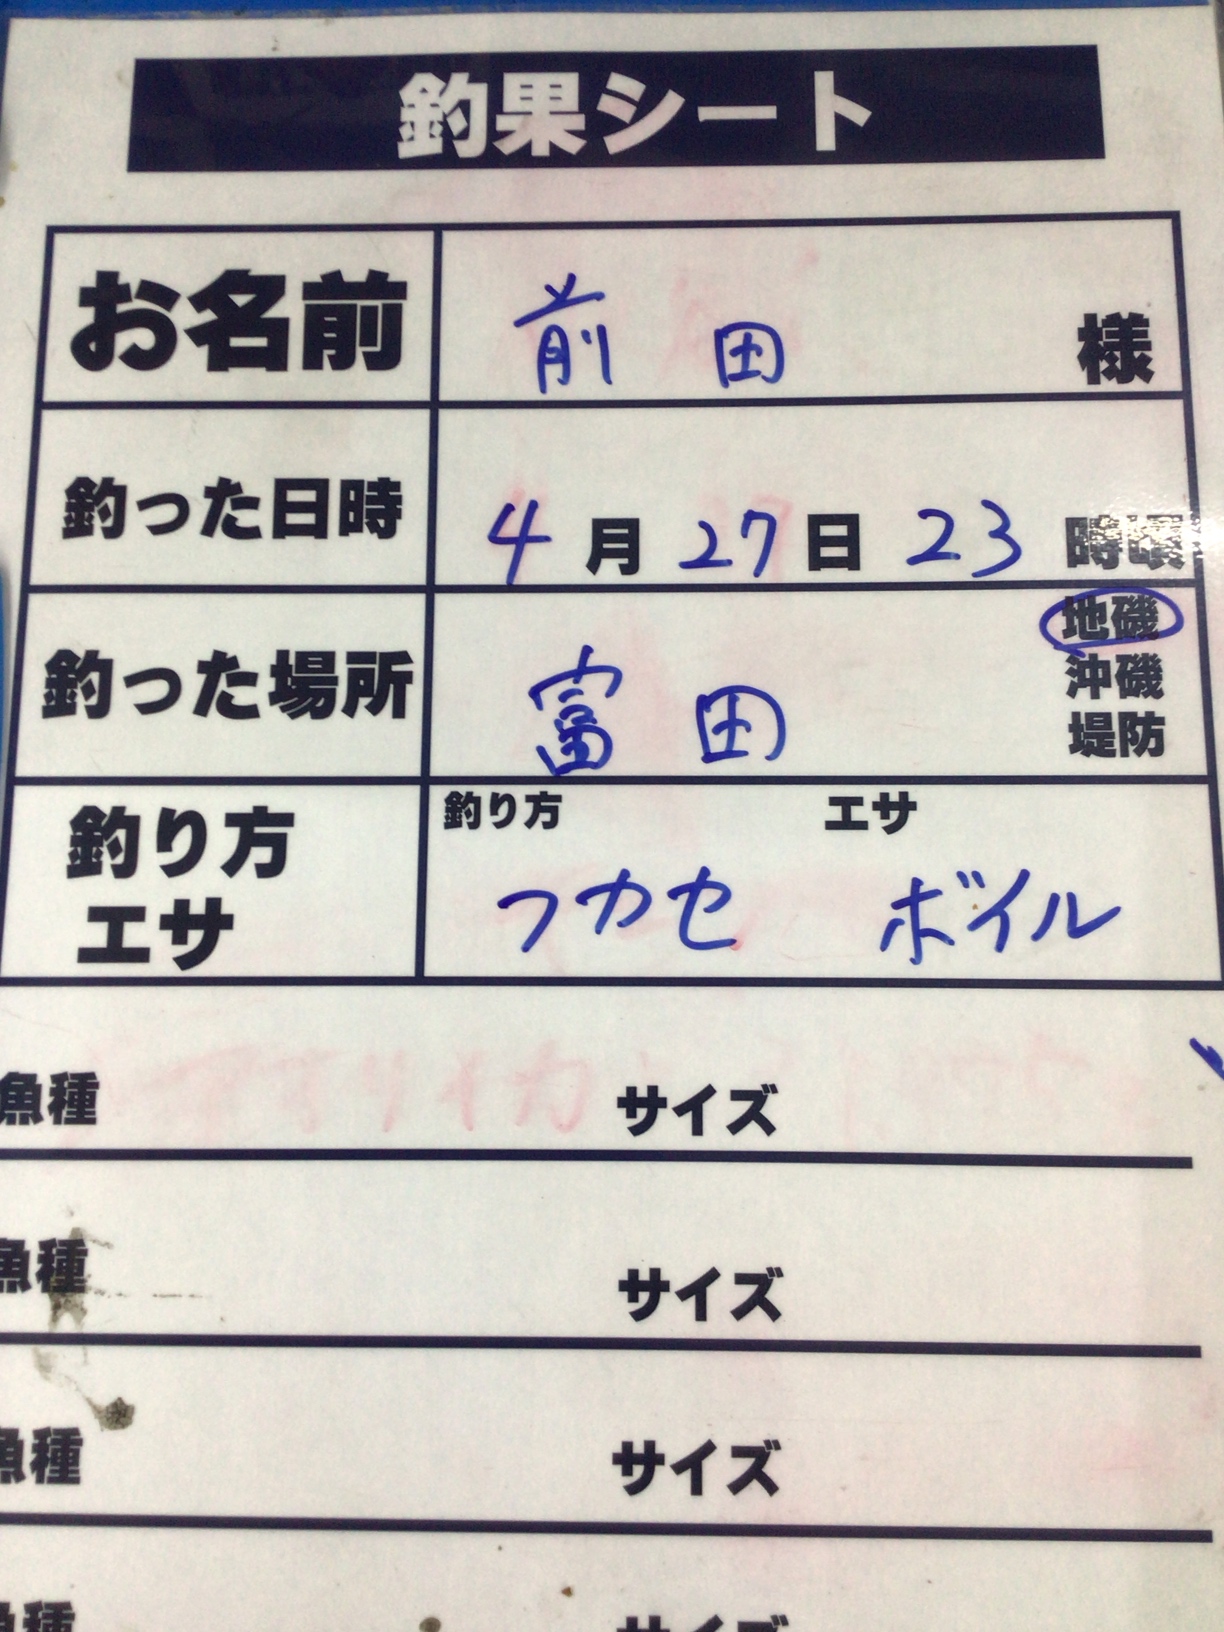 釣果シート
お名前 前田 様
釣った日時 4月27日23時頃
釣った場所 富田 地磯
沖磯
堤防
釣り方
エサ
釣り方 エサ
フカセ ボイル
魚種 サイズ
魚種 サイズ
魚種 サイズ
魚種 サイズ